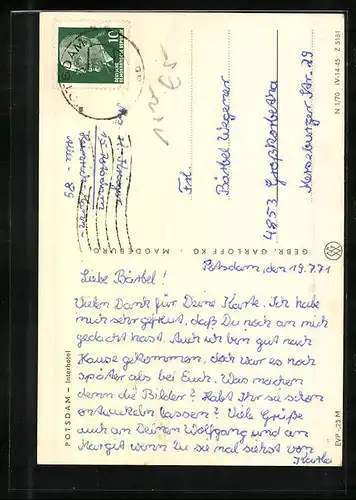 POTSDAM
10
DEUTSCHE
DEMOKRATISCHE REPUBLIK
N 1/70 IV-14-45 Z 5181
Frl.
Bärbel Wegener
4853 Großkorbetha
Merseburger Str. 29
15 Potsdam
GEBR. GARLOFF KG · MAGDEBURG
Potsdam, den 19.7.71
Liebe Bärbel!
Vielen Dank für Deine Karte. Ich habe
mich sehr gefreut, daß Du noch an mich
gedacht hast. Auch ich bin gut nach
Hause gekommen, doch war es noch
später als bei Euch. Was machen
denn die Bilder? Habt Ihr sie schon
entwickeln lassen? Viele Grüße
auch an Deinen Wolfgang und an
Margit wenn Du sie mal siehst von
POTSDAM – Interhotel
EVP -,23 M